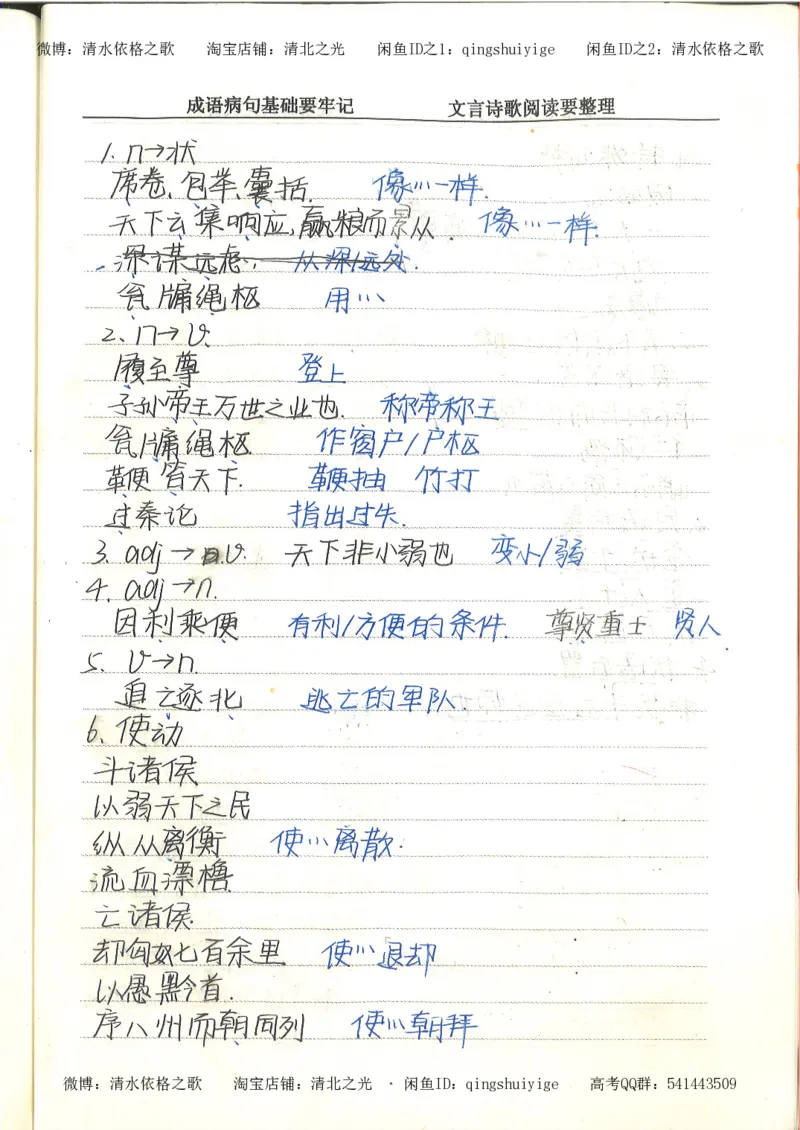 微博：清水依格之歌 淘宝店铺：清北之光 闲鱼ID之1：qingshuiyige 闲鱼ID之2：清水依格之歌
成语病句基础要牢记 文言诗歌阅读要整理
1. n→状
席卷、包举、囊括. 像…一样.
天下云集响应,赢粮而景从. 像…一样.
深谋远虑. 从深/远处.
瓮牖绳枢 用…
2. n→v.
履至尊 登上
子孙帝王万世之业也. 称帝称王
瓮牖绳枢 作窗户/户枢
鞭笞天下. 鞭抽 竹打
过秦论 指出过失.
3. adj→v. 天下非小弱也 变小/弱
4. adj→n.
因利乘便 有利/方便的条件. 尊贤重士 贤人
5. v→n.
追亡逐北 逃亡的军队.
6. 使动
斗诸侯
以弱天下之民
纵从离衡 使…离散.
流血漂橹
亡诸侯.
却匈奴七百余里 使…退却
以愚黔首.
序八州而朝同列 使…朝拜
微博：清水依格之歌 淘宝店铺：清北之光 · 闲鱼ID：qingshuiyige 高考QQ群：541443509